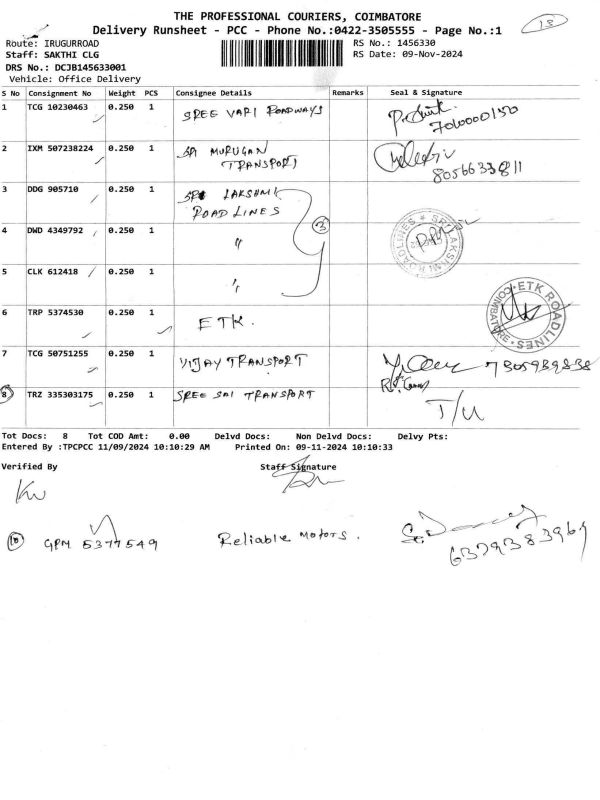 THE PROFESSIONAL COURIERS, COIMBATORE
Delivery Runsheet - PCC - Phone No.:0422-3505555 - Page No.:1
18
Route: IRUGURROAD
RS No.: 1456330
Staff: SAKTHI CLG
RS Date: 09-Nov-2024
DRS No.: DCJB145633001
Vehicle: Office Delivery
S No Consignment No Weight PCS Consignee Details Remarks Seal & Signature
1 TCG 10230463 0.250 1 SREE VARI ROADWAYS
2 IXM 507238224 0.250 1 SRI MURUGAN TRANSPORT 8056633811
3 DDG 905710 0.250 1 SRI LAKSHMI ROAD LINES
3
4 DWD 4349792 0.250 1 "
SRI LAKSHMI ROADLINES
5 CLK 612418 0.250 1 "
6 TRP 5374530 0.250 1 ETK.
ETK ROADLINES COIMBATORE
7 TCG 50751255 0.250 1 VIJAY TRANSPORT 7305939838
8 TRZ 335303175 0.250 1 SREE SAI TRANSPORT T/U
Tot Docs: 8 Tot COD Amt: 0.00 Delvd Docs: Non Delvd Docs: Delvy Pts:
Entered By :TPCPCC 11/09/2024 10:10:29 AM Printed On: 09-11-2024 10:10:33
Verified By Staff Signature
10 GPM 5377549 Reliable Motors. 6379383969